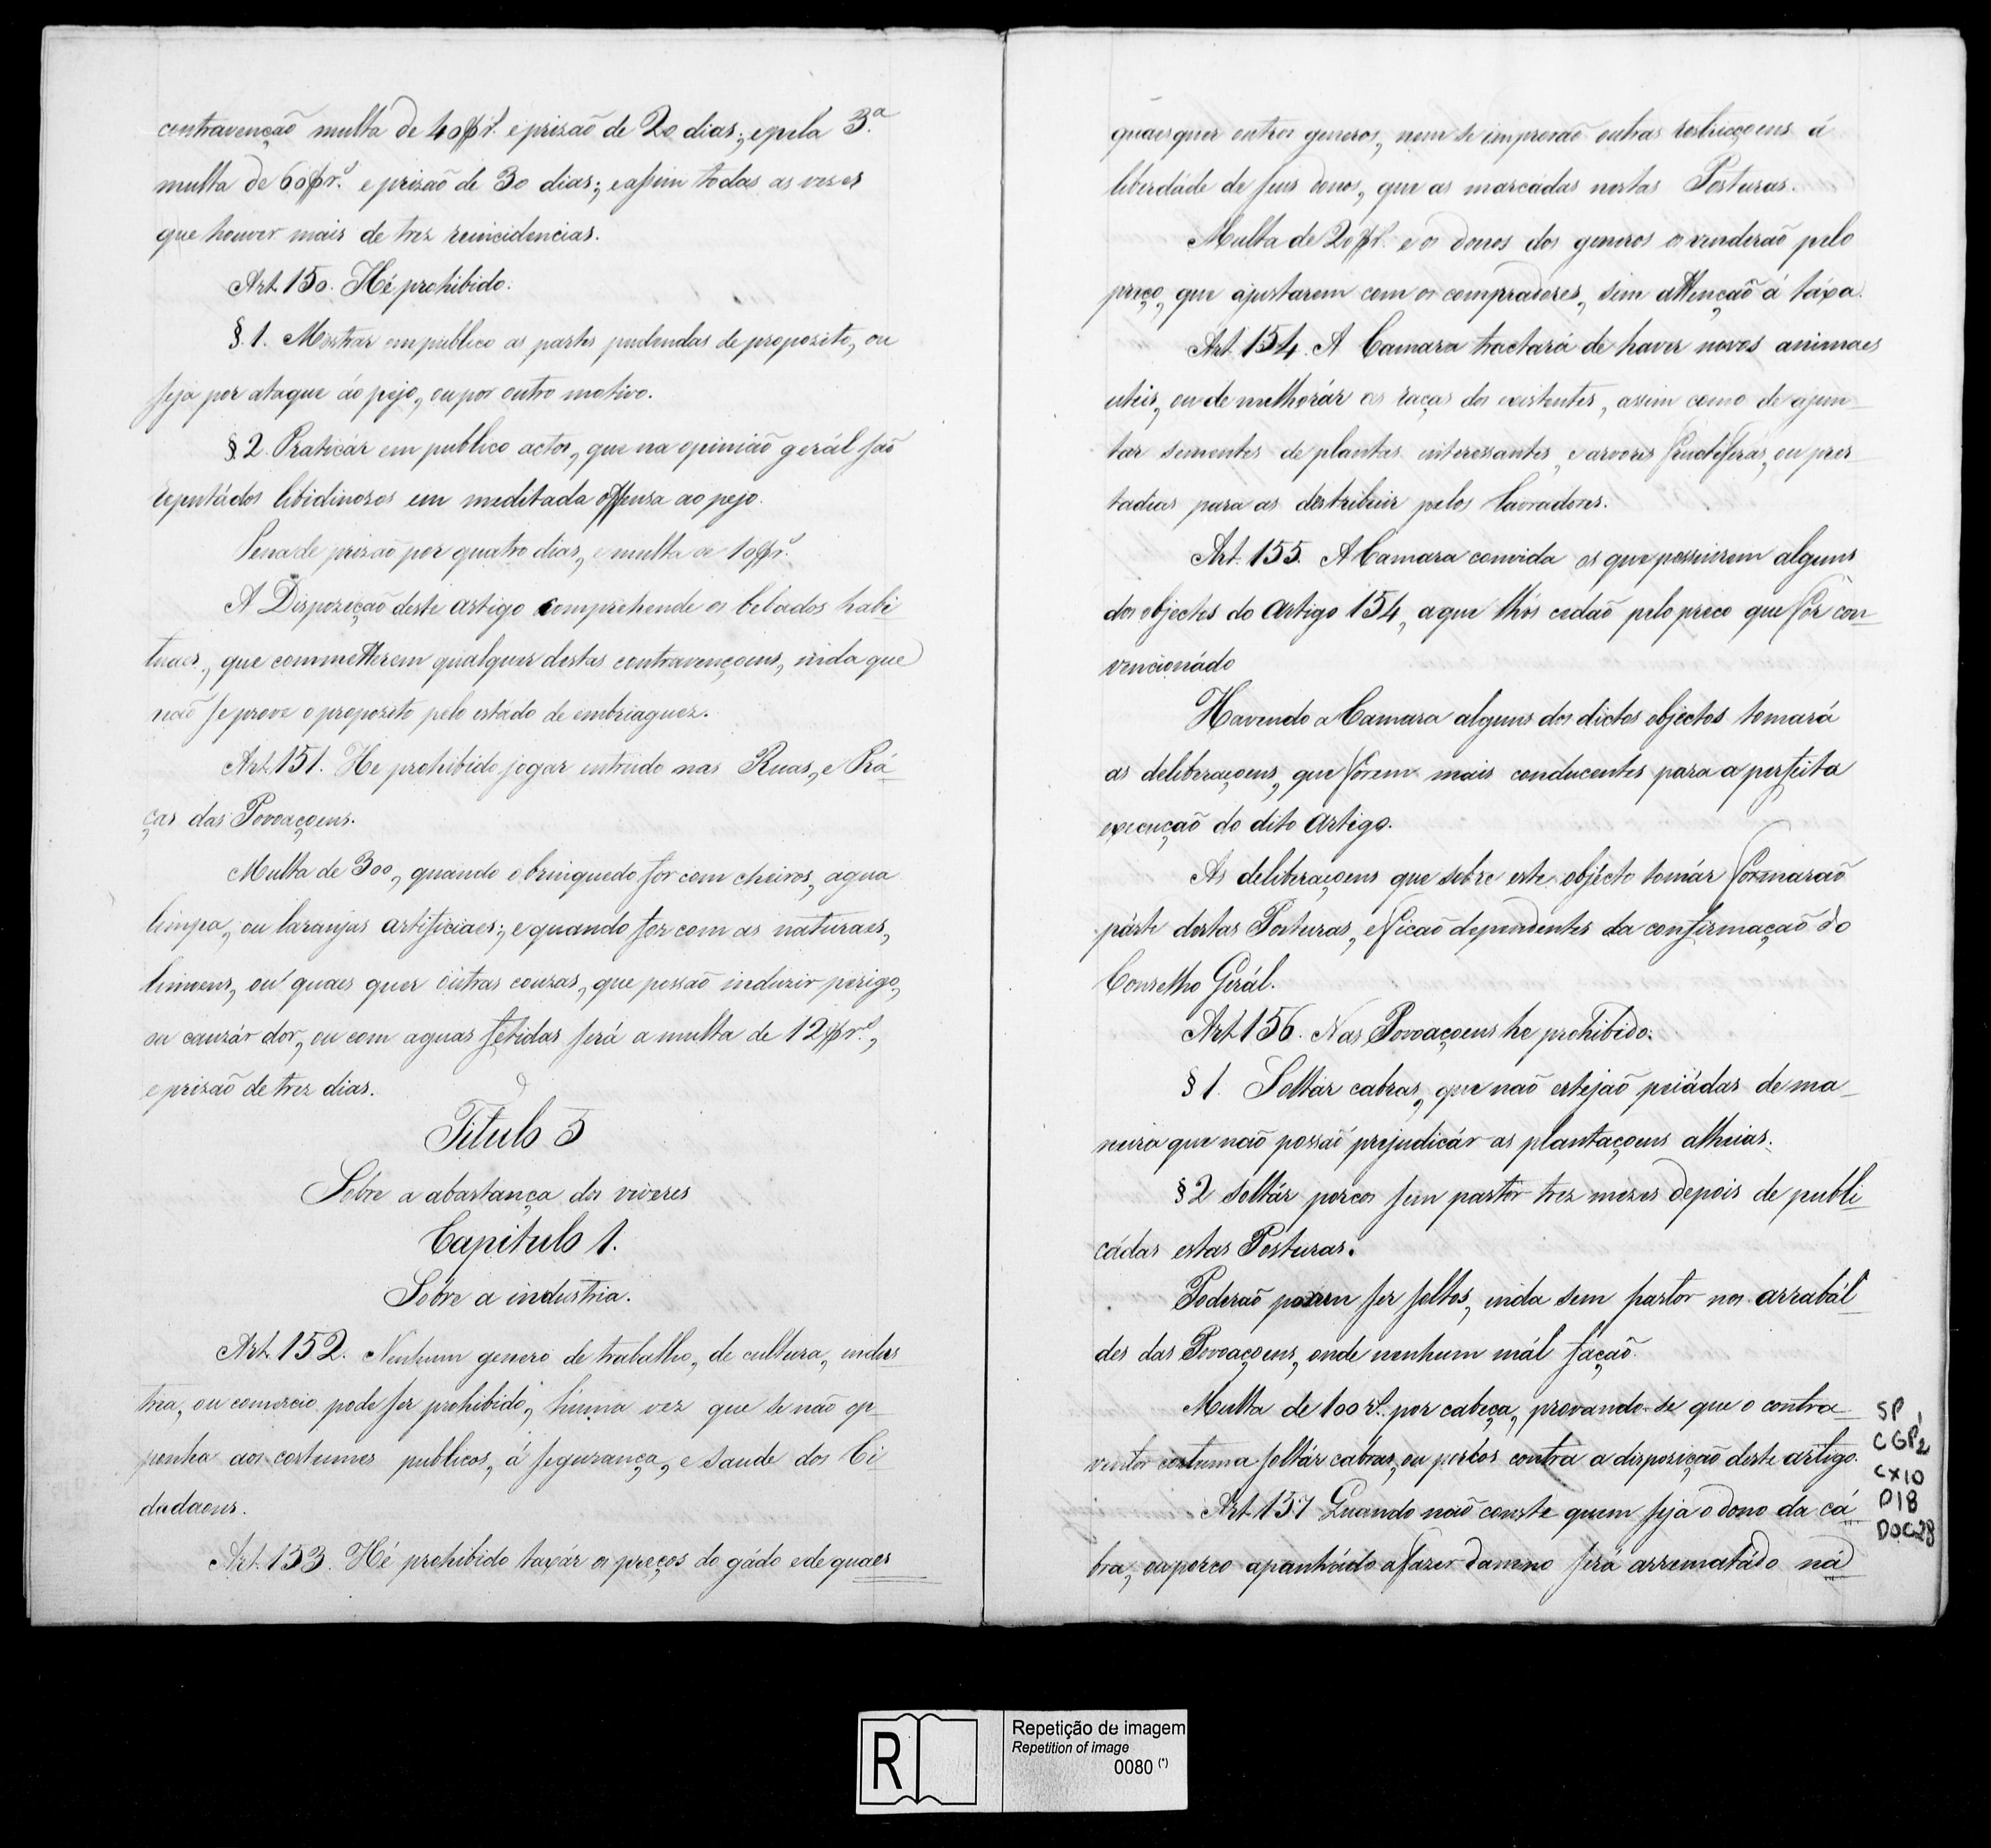 contravenção multa de 40$r.s e prizaõ de 20 dias; e pela 3.a
multa de 60$r.s e prizaõ de 30 dias; e assim todas as vezes
que houver mais de trez reincidencias.
Art. 150. Hé prohibido.
§. 1. Mostrar em publico as partes pudendas de propozito, ou
seja por ataque áo pejo, ou por outro motivo.
§ 2. Praticár em publico actos, que na opiniaõ gerál saõ
reputádos libidinozos em meditada offensa ao pejo.
Pena de prizaõ por quatro dias, e multa de 10$r.s
A Dispoziçaõ deste artigo comprehende os bebados habi
tuaes, que commetterem qualquer destas contravençoens, inda que
naõ se prove o propozito pelo estádo de embriaguez.
Art. 151. He prohibido jogar entrudo nas Ruas, e Prá-
ças das Povoaçoens.
Multa de 300, quando o brinquedo for com cheiros, agua
limpa, ou laranjas artificiaes; e quando for com as naturaes,
limoens, ou quaes quer óutras couzas, que possaõ induzir perigo,
ou cauzár dor, ou com aguas fetidas será a multa de 12$r.s,
e prizaõ de trez dias.
Titulo 5
Sobre a abastança dos viveres
Capitulo 1.
Sobre a industria.
Art. 152. Nenhum genero de trabalho, de cultura, indus
tria, ou comercio pode ser prohibido, huma vez que se naõ op-
ponha aos costumes publicos, á segurança, e saude dos Ci-
dadaons.
Art. 153. Hé prohibido taxár os preços do gádo e de quaes
quaesquer outros generos, nem se imporaõ outras restricçoens á
liberdáde de seus donos, que as marcadas nestas Posturas.
Multa de 20$r.s e os donos dos generos os venderaõ pelo
preço, que ajustarem com os compradores, sem attençaõ á táxa.
Art. 154. A Camara tractará de haver novos animaes
uteis, ou de melhorár as raças dos existentes, assim como de ajun-
tar sementes de plantas interessantes, e arvores fructiferas, ou pres-
tadias para as destribuir pelos lavradores.
Art. 155. A Camara convida os que possuirem alguns
dos objectos do Artigo 154, a que lhos cedaõ pelo preco que fôr con-
vencionádo
Havendo a Camara alguns dos dictos objectos tomará
as deliberaçoens, que fôrem mais conducentes para a perfeita
execuçaõ do dito Artigo.
As deliberaçoens que sobre este objécto tomár formaraõ
párte destas Posturas, e ficaõ dependentes da confirmaçaõ do
Conselho Gerál.
Art. 156. Nas Povoaçoens he prohibido.
§ 1. Soltár cabras, que naõ estejaõ peiádas de ma-
neira que naõ possaõ prejudicár as plantaçoens alheias.
§ 2 Soltár porcos sem pastor trez mezes depois de publi
cádas estas Posturas.
Poderaõ porem ser soltos, inda sem pastor nos arrabál
des das Povoaçoens, onde nenhum mál façaõ.
Multa de 100 r.s por cabeça, provando-se que o contra-
ventor costuma soltár cabras, ou porcos contra a disposiçaõ deste artigo.
Art. 157 Quando naõ conste quem seja o dono da cá
bra, ou porco apanhádo a fazer damno será arrematádo ná
SP
CGP1
2
CX10
P18
DOC28
R
Repetição de imagem
Repetition of image
0080 (*)